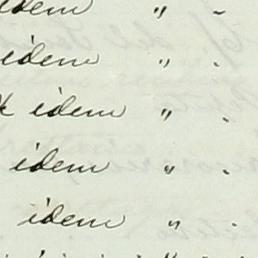 idem " -
idem " .
idem " .
idem " .
idem " .